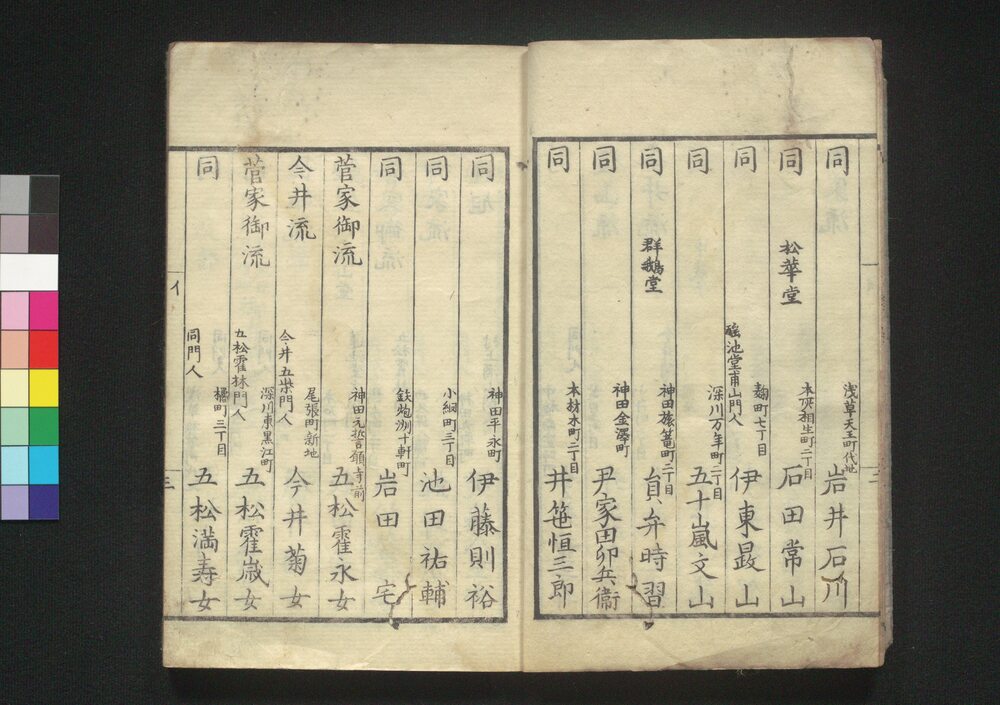 同 浅草天王町代地 岩井石川
同 松華堂 本所相生町二丁目 石田常山
同 麹町七丁目 伊東最山
同 硯池堂甫山門人 深川万年町二丁目 五十嵐文山
同 群鵝堂 神田旅篭町二丁目 弁時習
同 神田金澤町 尹家田卯兵衛
同 本材木町二丁目 井笹恒三郎
三
同 神田平永町 伊藤則裕
同 小網町三丁目 池田祐輔
同 鉄炮洲十軒町 岩田宅
菅家御流 神田元誓願寺前 五松霍永女
今井流 今井五柴門人 尾張町新地 今井菊女
菅家御流 五松霍林門人 深川東黒江町 五松霍嶶女
同 同門人 橘町三丁目 五松満寿女
イ
三